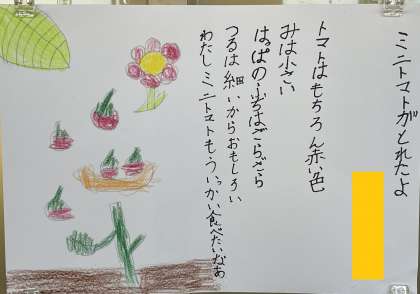 ミニトマトがとれたよ
トマトはもちろん赤い色
みは小さい
はっぱのふちはざらざら
つるは細いからおもしろい
わたしミニトマトもういっかい食べたいなあ